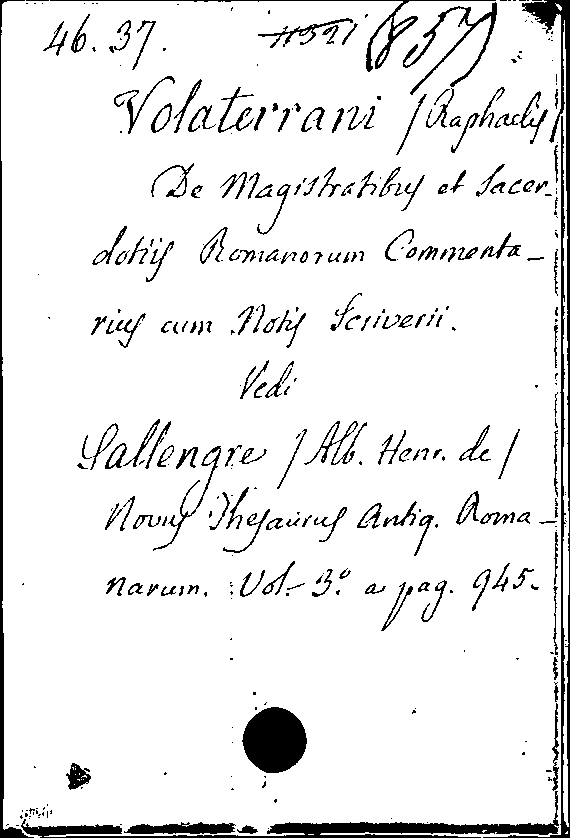 46. 37. 11521 (857)
Volaterrani /Raphaelis/
De Magistratibus et Sacer-
dotiis Romanorum Commenta-
rius cum Notis Scriverii.
Vedi
Sallengre /Alb. Henr. de/
Novus Thesaurus Antiq. Roma-
narum. Vol. 3.º a pag. 945.